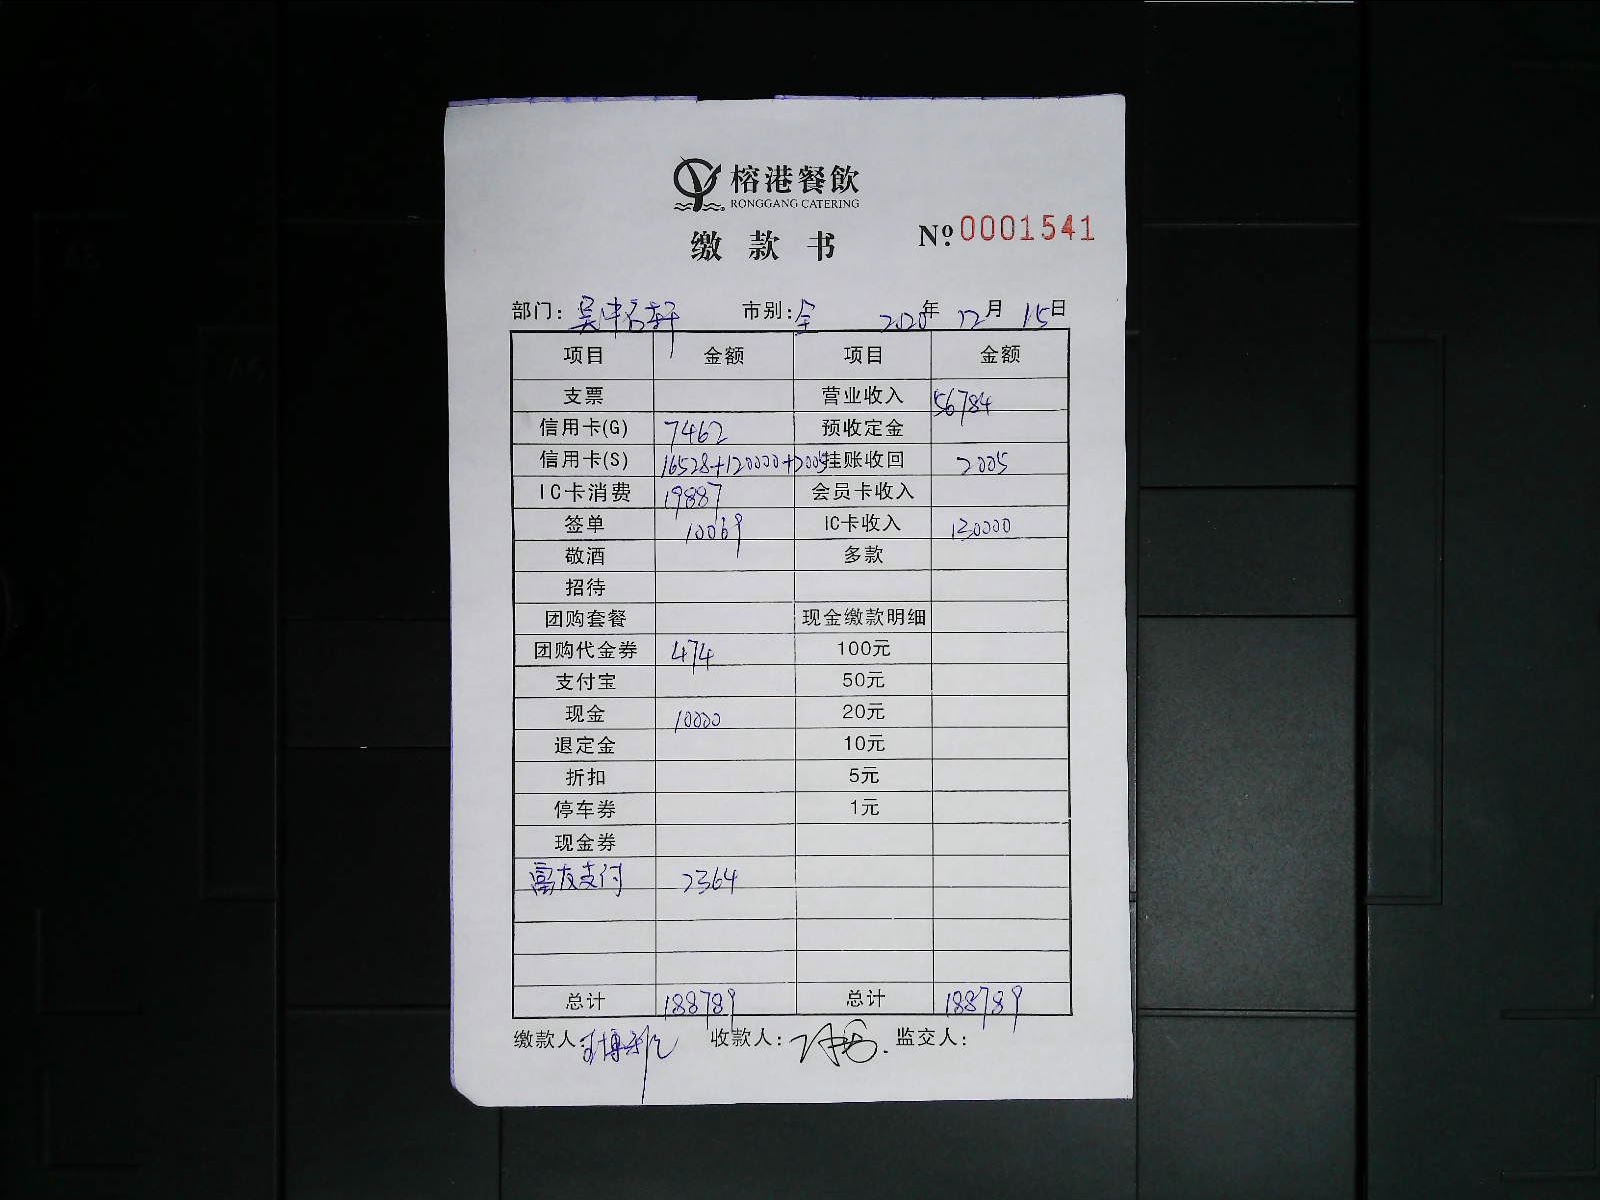 榕港餐飲
RONGGANG CATERING
缴款书
Nº: 0001541
部门: 吴中名轩 市别: 全 2020年 12月 15日
项目 金额 项目 金额
支票 营业收入 56784
信用卡(G) 7462 预收定金
信用卡(S) 16528+120000+2005 挂账收回 2005
IC卡消费 19887 会员卡收入
签单 10069 IC卡收入 130000
敬酒 多款
招待
团购套餐 现金缴款明细
团购代金券 474 100元
支付宝 50元
现金 10000 20元
退定金 10元
折扣 5元
停车券 1元
现金券
富友支付 2364
总计 188789 总计 188789
缴款人: 收款人: 监交人: